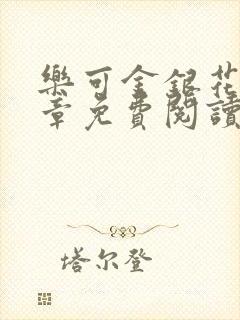 樂可金銀花
章免費閱讀
塔尔登